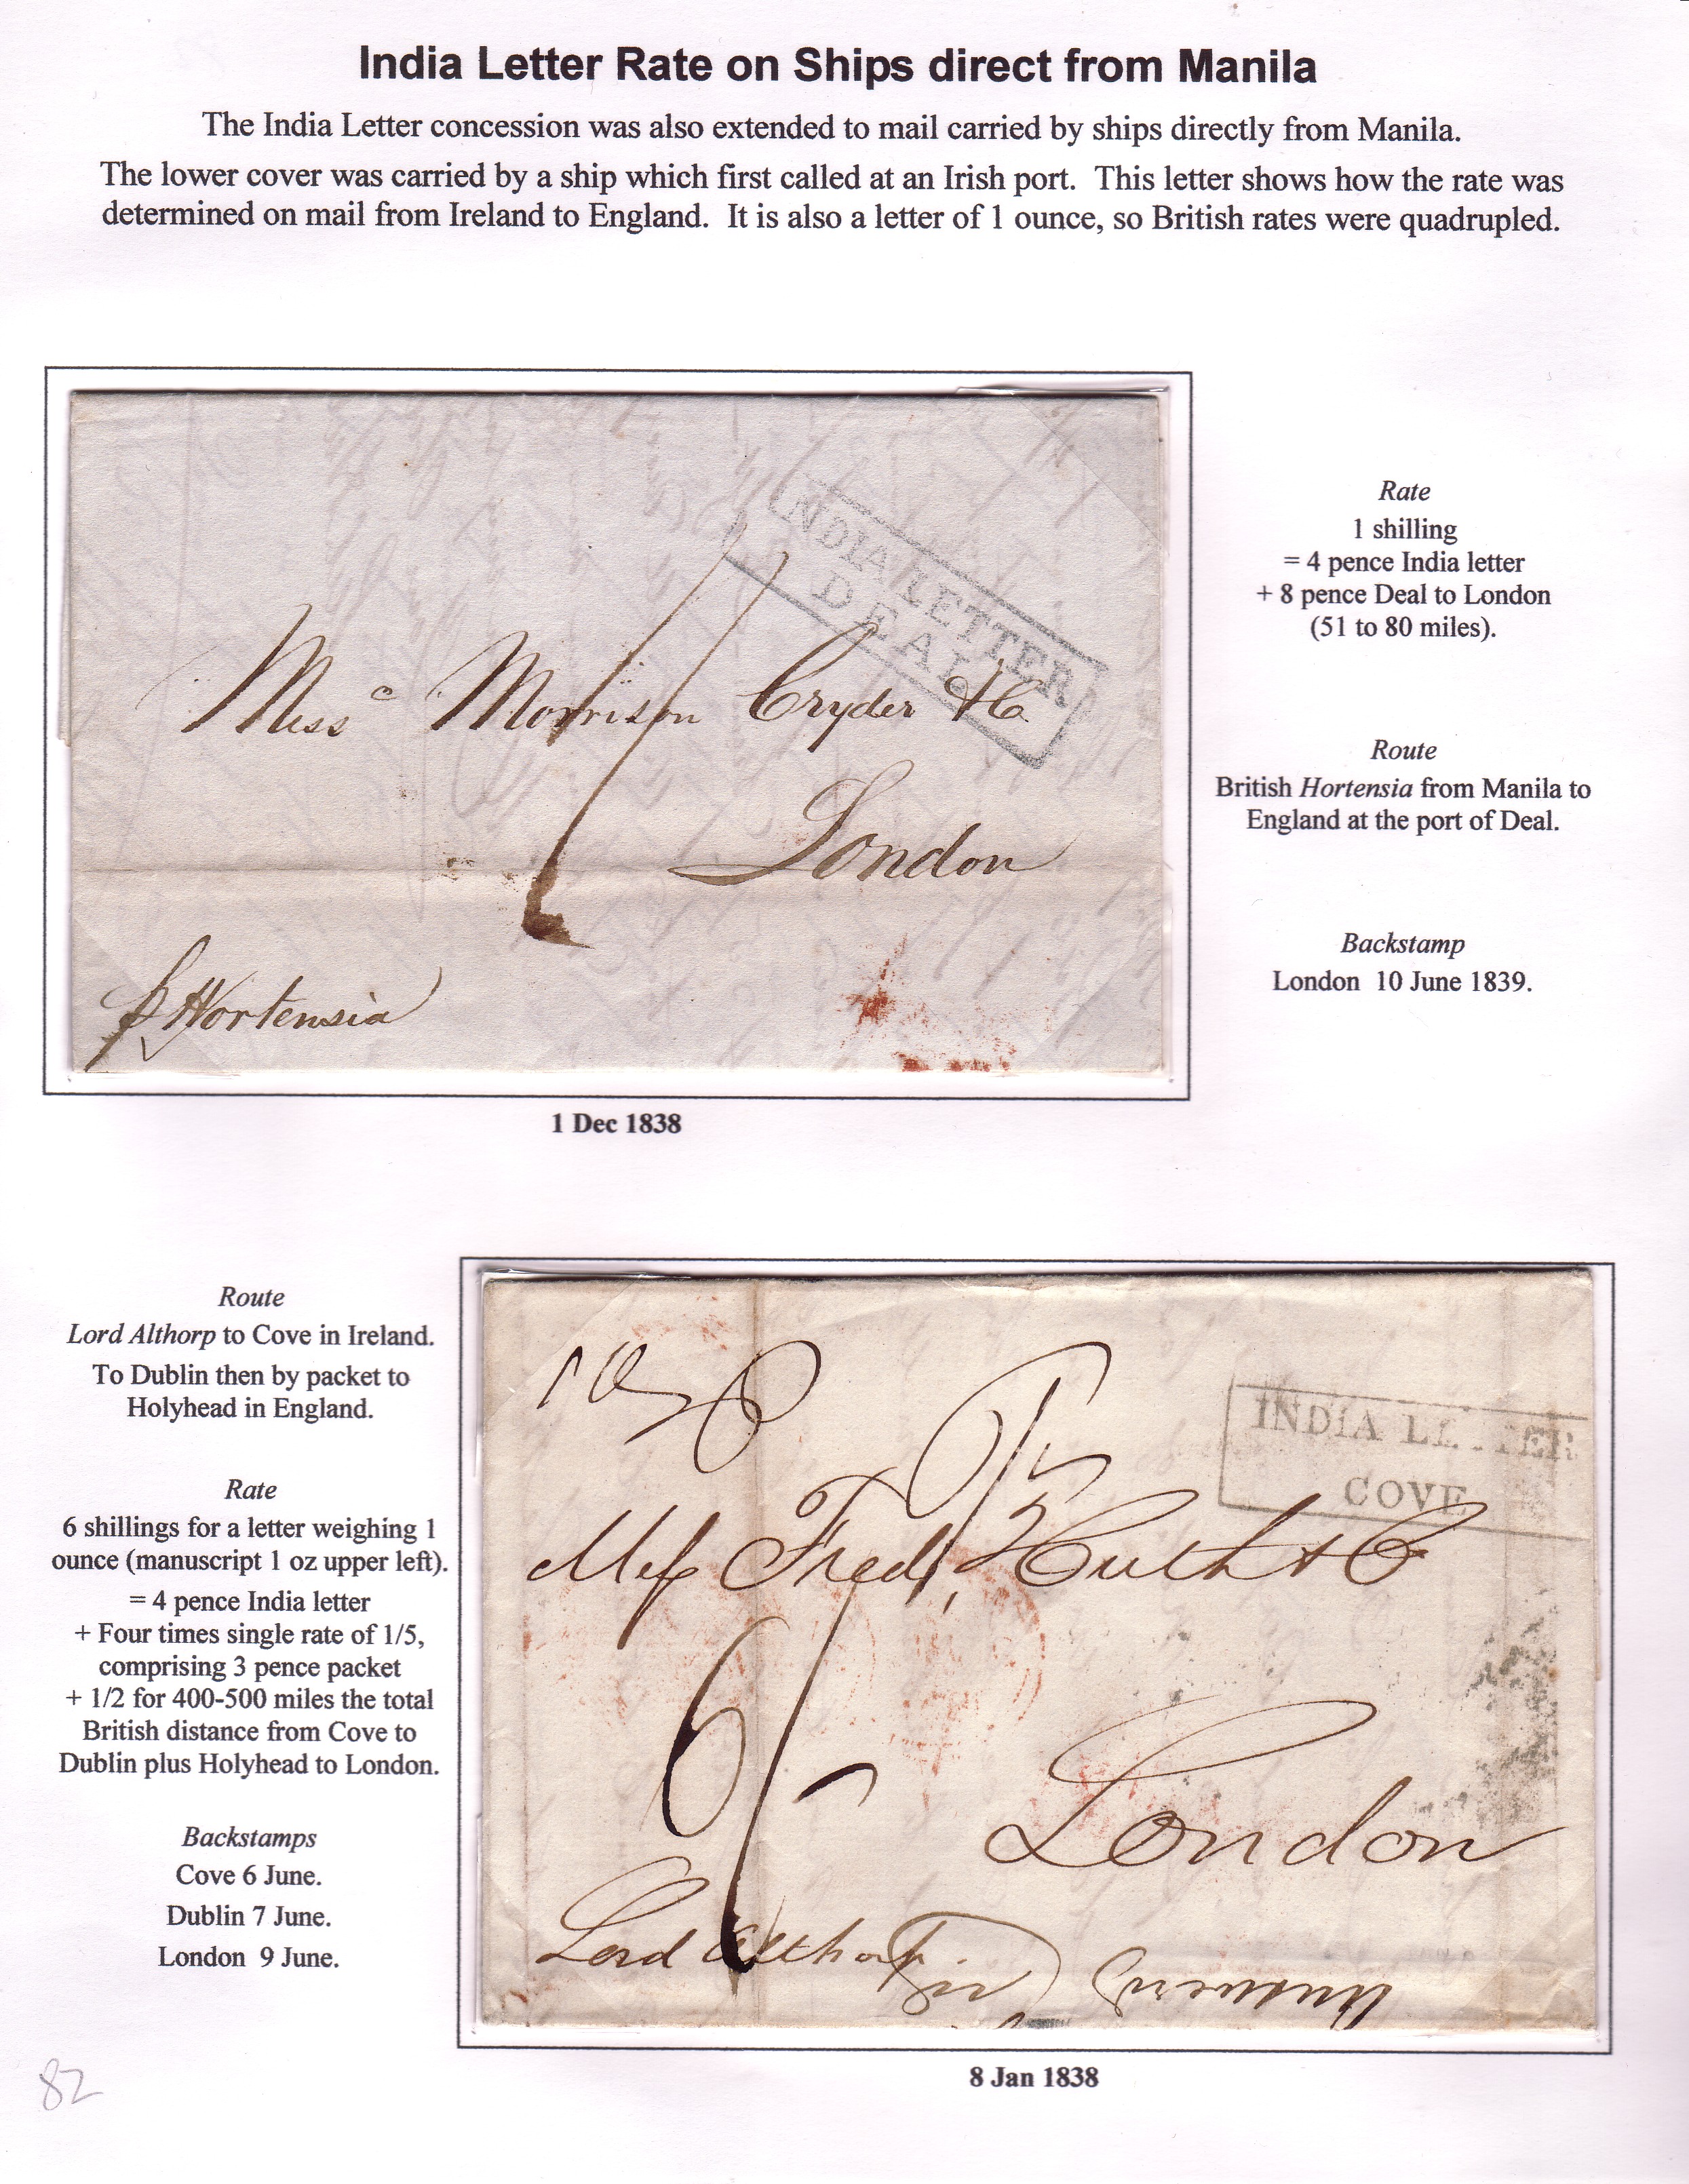 India Letter Rate on Ships direct from Manila
The India Letter concession was also extended to mail carried by ships directly from Manila.
The lower cover was carried by a ship which first called at an Irish port. This letter shows how the rate was
determined on mail from Ireland to England. It is also a letter of 1 ounce, so British rates were quadrupled.
INDIA LETTER
DEAL
Mess Morrison Cryder & Co
London
p Hortensia
1 Dec 1838
Rate
1 shilling
= 4 pence India letter
+ 8 pence Deal to London
(51 to 80 miles).
Route
British Hortensia from Manila to
England at the port of Deal.
Backstamp
London 10 June 1839.
Route
Lord Althorp to Cove in Ireland.
To Dublin then by packet to
Holyhead in England.
Rate
6 shillings for a letter weighing 1
ounce (manuscript 1 oz upper left).
= 4 pence India letter
+ Four times single rate of 1/5,
comprising 3 pence packet
+ 1/2 for 400-500 miles the total
British distance from Cove to
Dublin plus Holyhead to London.
Backstamps
Cove 6 June.
Dublin 7 June.
London 9 June.
1 Oz
INDIA LETTER
COVE
Mess Fredk Huth & Co
6/-
London
Lord Althorp
8 Jan 1838
82